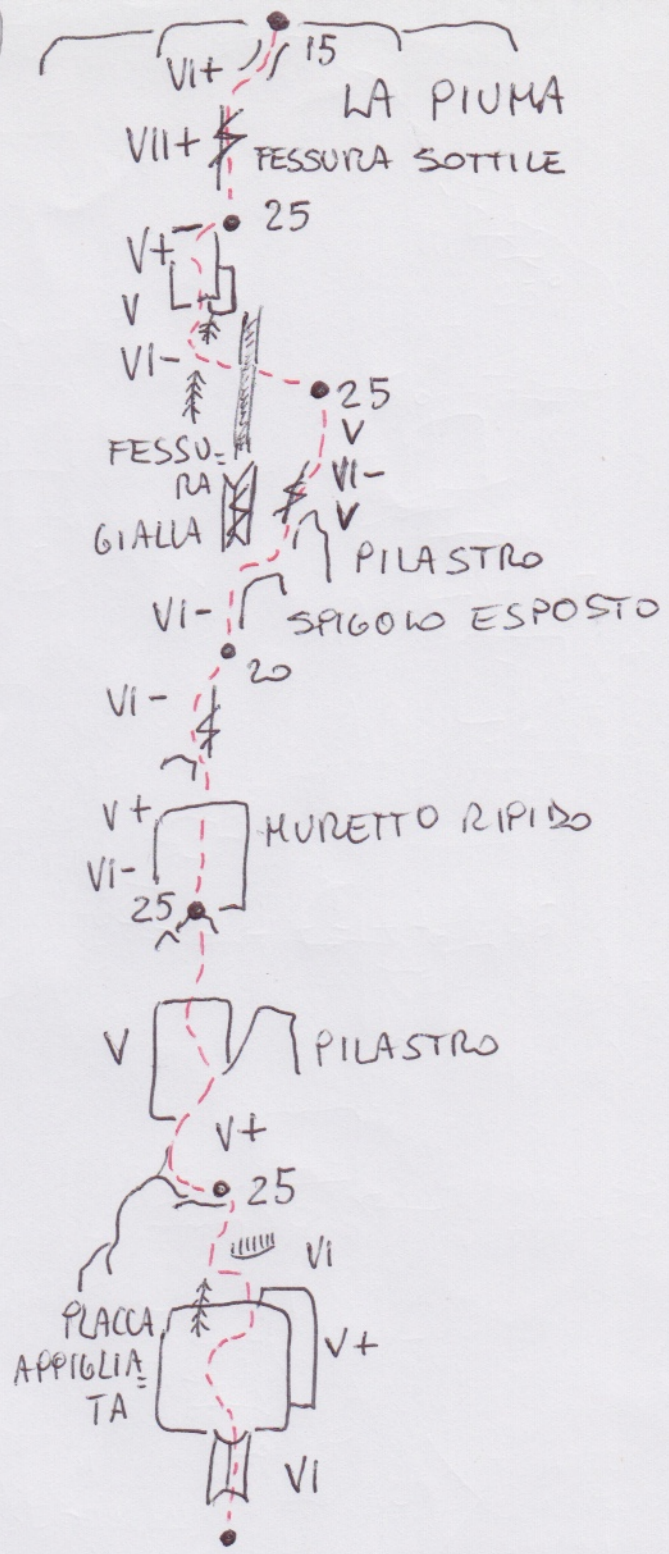 15
VI+
LA PIUMA
VII+ FESSURA SOTTILE
25
V+
V
VI-
25
V
FESSU=
RA
GIALLA
VI-
V
PILASTRO
VI- SPIGOLO ESPOSTO
20
VI-
V+ MURETTO RIPIDO
VI-
25
V PILASTRO
V+
25
VI
PLACCA
APPIGLIA=
TA
V+
VI